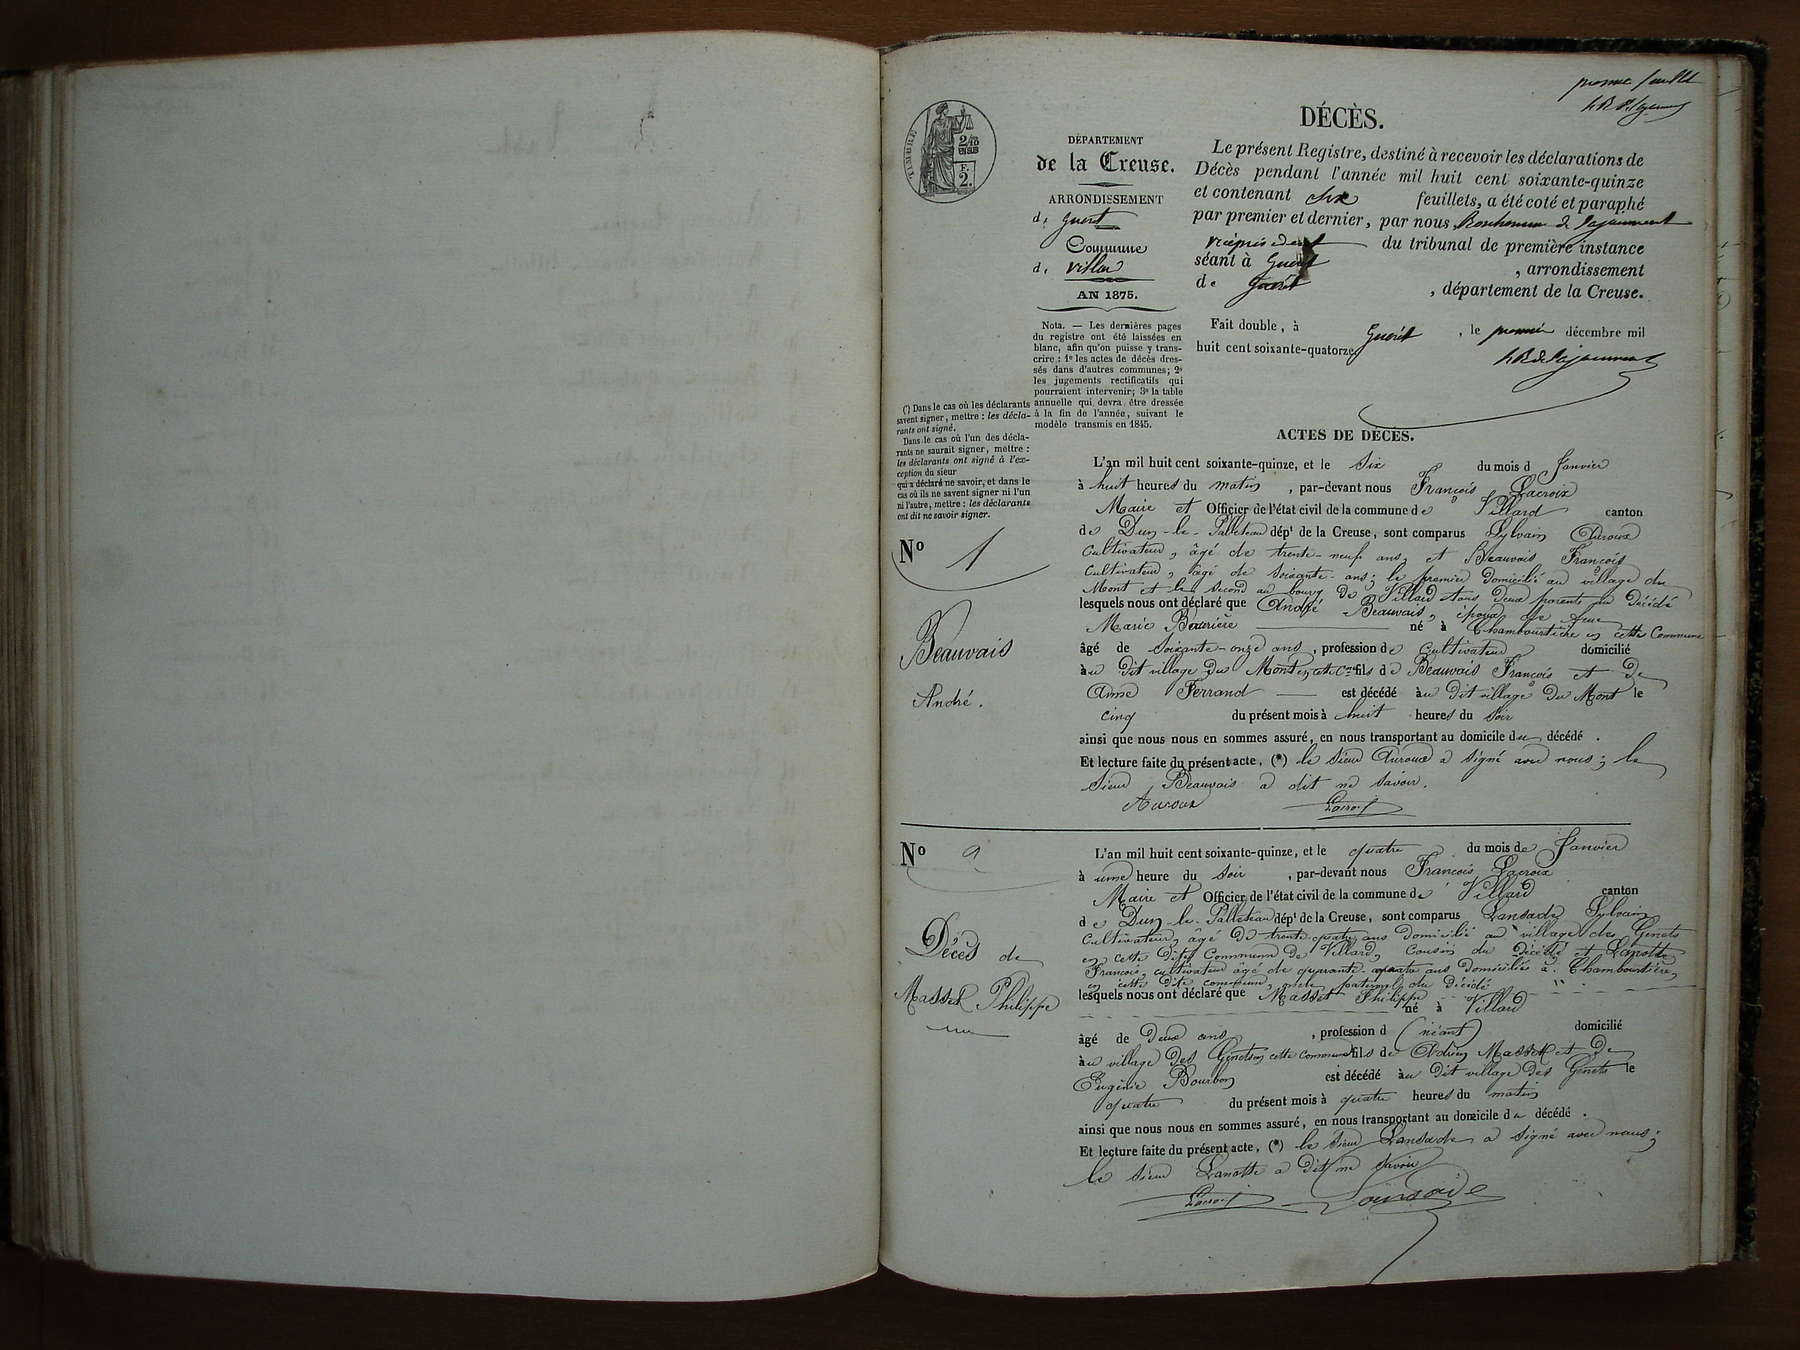 premier feuillet
TIMBRE
2/10 EN SUS
F. 2.
DÉPARTEMENT
de la Creuse.
ARRONDISSEMENT
de Guéret
Commune
de Villard
AN 1875.
Nota. — Les dernières pages
du registre ont été laissées en
blanc, afin qu'on puisse y trans-
crire : 1º les actes de décès dres-
sés dans d'autres communes; 2º
les jugements rectificatifs qui
pourraient intervenir; 3º la table
annuelle qui devra être dressée
à la fin de l'année, suivant le
modèle transmis en 1845.
(*) Dans le cas où les déclarants
savent signer, mettre : les décla-
rants ont signé.
Dans le cas où l'un des décla-
rants ne saurait signer, mettre :
les déclarants ont signé à l'ex-
ception du sieur
qui a déclaré ne savoir, et dans le
cas où ils ne savent signer ni l'un
ni l'autre, mettre : les déclarants
ont dit ne savoir signer.
DÉCÈS.
Le présent Registre, destiné à recevoir les déclarations de
Décès pendant l'année mil huit cent soixante-quinze
et contenant six feuillets, a été coté et paraphé
par premier et dernier, par nous Bonhomme de Lajaumont
vice président du tribunal de première instance
séant à Guéret , arrondissement
de Guéret , département de la Creuse.
Fait double, à Guéret , le premier décembre mil
huit cent soixante-quatorze
ACTES DE DÉCÈS.
Nº 1
Beauvais
André.
L'an mil huit cent soixante-quinze, et le Six du mois d Janvier
à huit heures du matin , par-devant nous François Lacroix
Maire et Officier de l'état civil de la commune de Villard canton
de Dun-le-Palleteau dépt de la Creuse, sont comparus Sylvain Auroux
Cultivateur, âgé de trente-neuf ans, et Beauvais François
Cultivateur, âgé de soixante-ans; le premier domicilié au village du
Mont et le second au bourg de Villard tous deux parents du Décédé
lesquels nous ont déclaré que André Beauvais, époux de feue
Marie Barrière né à Chamboursière en cette Commune
âgé de soixante-onze ans, profession de Cultivateur domicilié
au dit village du Mont en cette Cne fils de Beauvais François et de
Anne Ferrand est décédé au dit village Du Mont le
cinq du présent mois à huit heures du soir
ainsi que nous nous en sommes assuré, en nous transportant au domicile du décédé .
Et lecture faite du présent acte, (*) le Sieur Auroux a signé avec nous; le
Sieur Beauvais a dit ne savoir.
Auroux Lacroix
Nº 2
Décès de
Masset Philippe
L'an mil huit cent soixante-quinze, et le quatre du mois de Janvier
à une heure du soir , par-devant nous François Lacroix
Maire et Officier de l'état civil de la commune de Villard canton
de Dun-le-Palleteau dépt de la Creuse, sont comparus Lansade Sylvain
Cultivateur, âgé de trente-quatre ans domicilié au village des Genets
en cette dite Commune de Villard, Cousin du Décédé et Lanotte
François, cultivateur âgé de quarante-quatre ans domiciliés à Chamboursière,
en cette dite commune, oncle paternel du Décédé
lesquels nous ont déclaré que Masset Philippe
né à Villard
âgé de Deux ans , profession d (néant) domicilié
au village des Genets en cette commune fils de Adrien Masset et De
Eugénie Bourbon est décédé au dit village des Genets le
quatre du présent mois à quatre heures du matin
ainsi que nous nous en sommes assuré, en nous transportant au domicile du décédé .
Et lecture faite du présent acte, (*) le Sieur Lansade a signé avec nous;
le sieur Lanotte a dit ne savoir
Lacroix Lansade